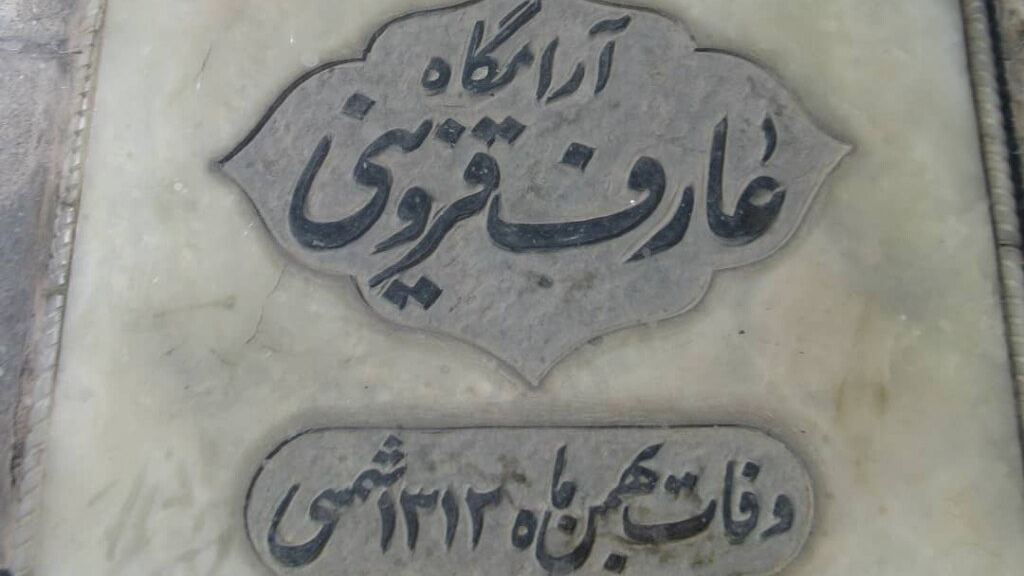 آرامگاه
عارف قزوینی
وفات بهمن ماه ۱۳۱۲ شمسی